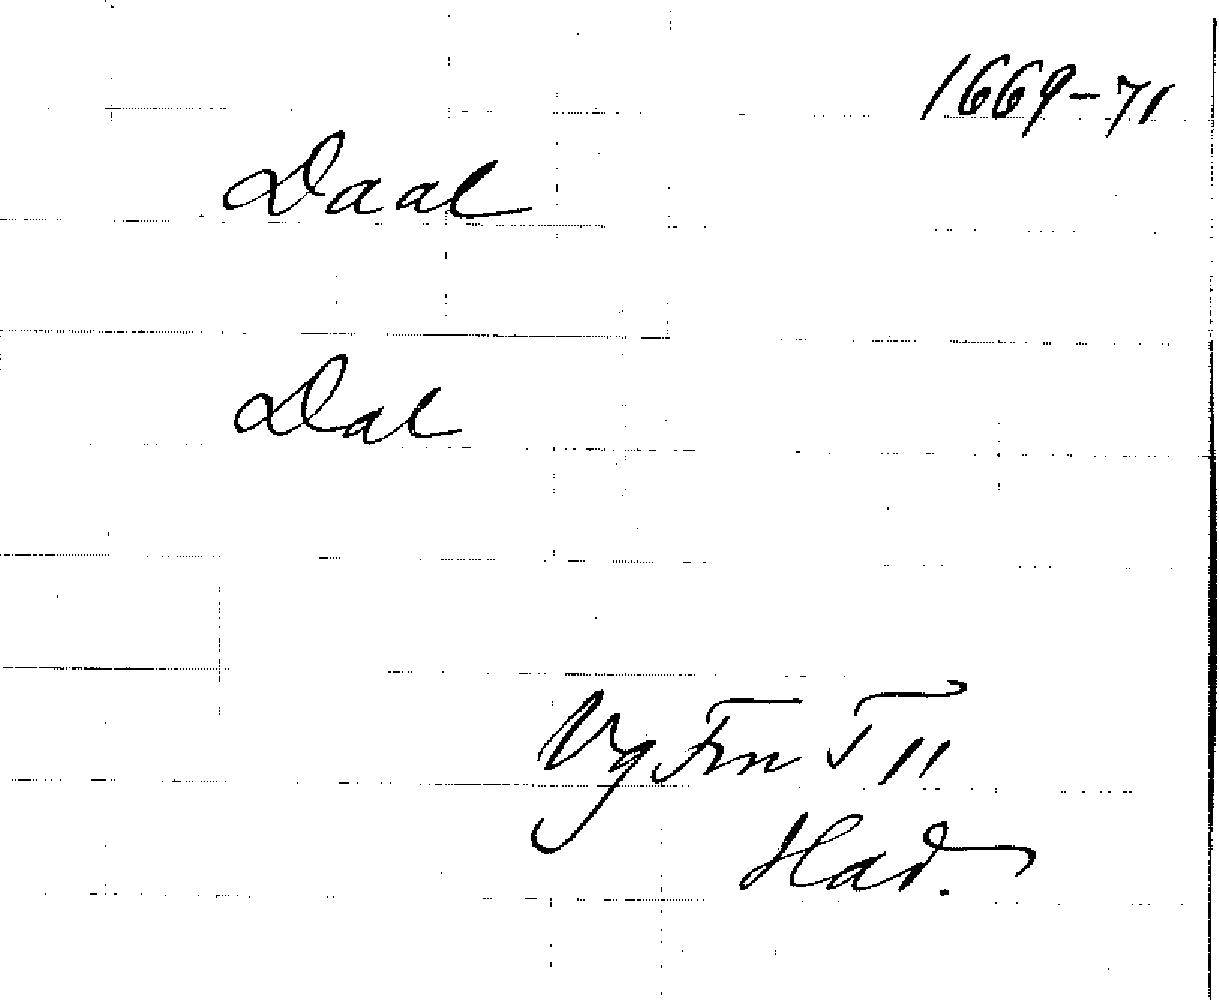 1669-71
Daal
Dal
Vg Frn T 11
Had.